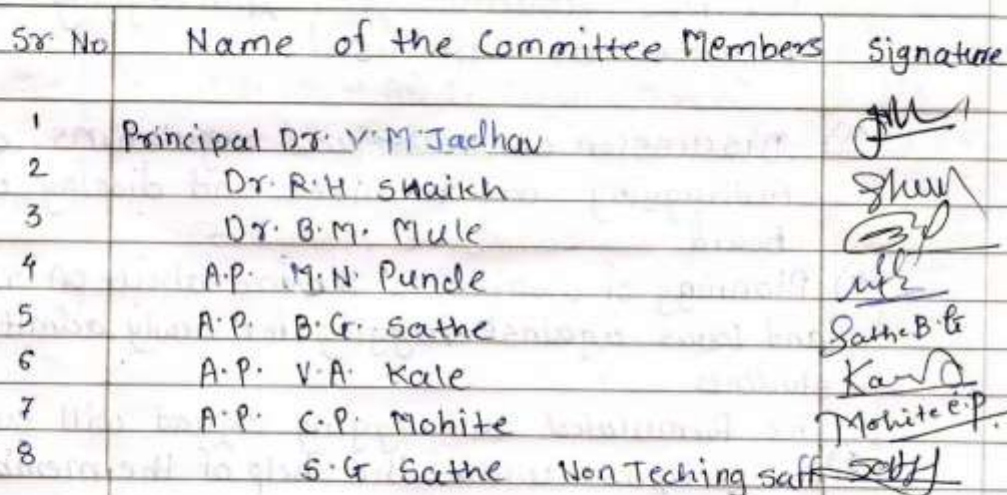 Sr No Name of the Committee Members Signature
1 Principal Dr. V.M. Jadhav
2 Dr. R.H. Shaikh
3 Dr. B.M. Mule
4 A.P. M.N. Punde
5 A.P. B.G. Sathe Sathe B.G
6 A.P. V.A. Kale
7 A.P. C.P. Mohite Mohite C.P.
8 S.G Sathe Non Teching saff